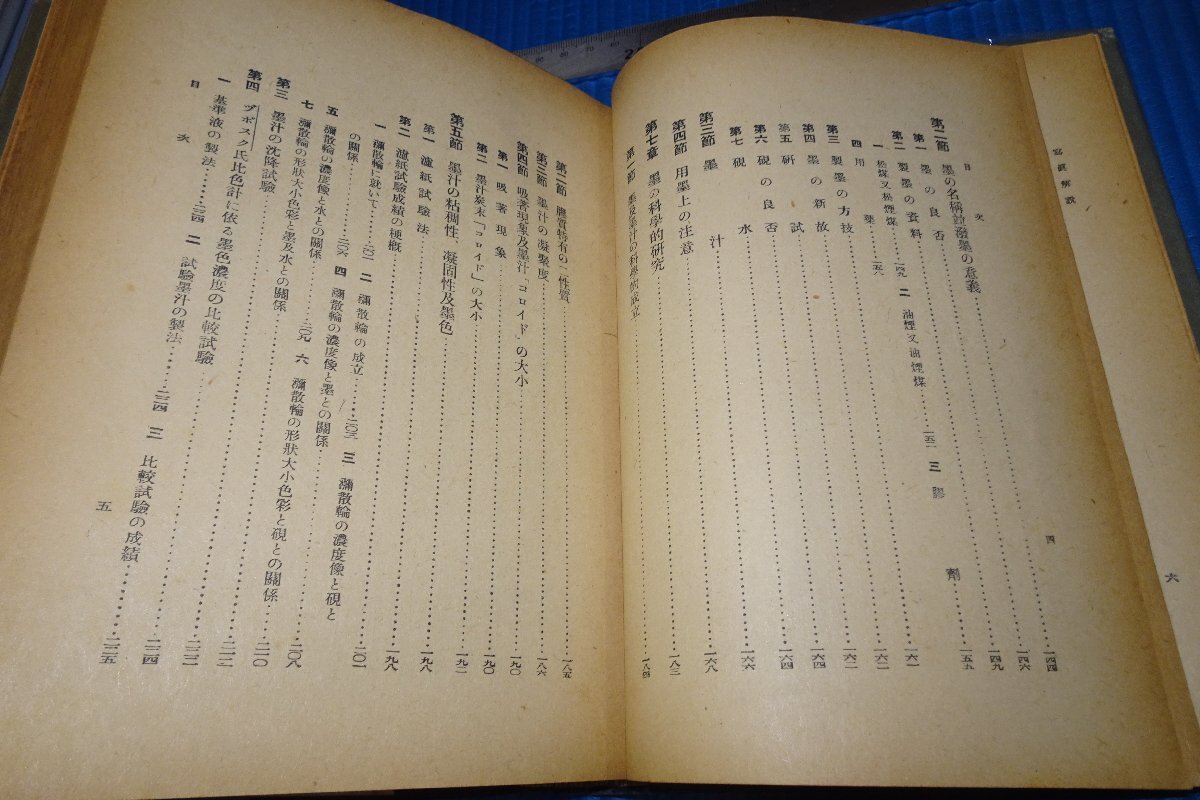 寫眞解說
六
目次
四
第二節 墨の名稱竝潑墨の意義……一四四
第一 墨の良否……一四六
第二 製墨の資料……一四九
一 松煤又松煙煤……一四九 二 油煙又油煙煤……一五二 三 膠劑……一五九
四 用藥……一五六
第三 製墨の方技……一六一
第四 墨の新故……一六二
第五 硏試……一六二
第六 硯の良否……一六四
第七 硯水……一六四
第三節 墨汁……一六六
第四節 用墨上の注意……一六八
第七章 墨の科學的硏究……一八三
第一節 墨及墨汁の科學的成立……一八四
第二節 膠質特有の二性質……一八五
第三節 墨汁の凝聚度……一八六
第四節 吸著現象及墨汁「コロイド」の大小……一九〇
第一 吸著現象……一九〇
第二 墨汁炭末「コロイド」の大小……一九二
第五節 墨汁の粘稠性、凝固性及墨色……一九八
第一 濾紙試驗法……一九八
第二 濾紙試驗成績の梗槪……二〇一
一 彌散輪に就いて……二〇一 二 彌散輪の成立……二〇三 三 彌散輪の濃度像と硯と
の關係……二〇六 四 彌散輪の濃度像と墨との關係……二〇八
五 彌散輪の濃度像と水との關係……二〇九 六 彌散輪の形狀大小色彩と硯との關係……二一〇
七 彌散輪の形狀大小色彩と墨及水との關係……二一二
第三 墨汁の沈降試驗……二二二
第四 ヂボスク氏比色計に依る墨色濃度の比較試驗……二二四
一 基準液の製法……二二四 二 試驗墨汁の製法……二二四 三 比較試驗の成績……二二五
目次
五